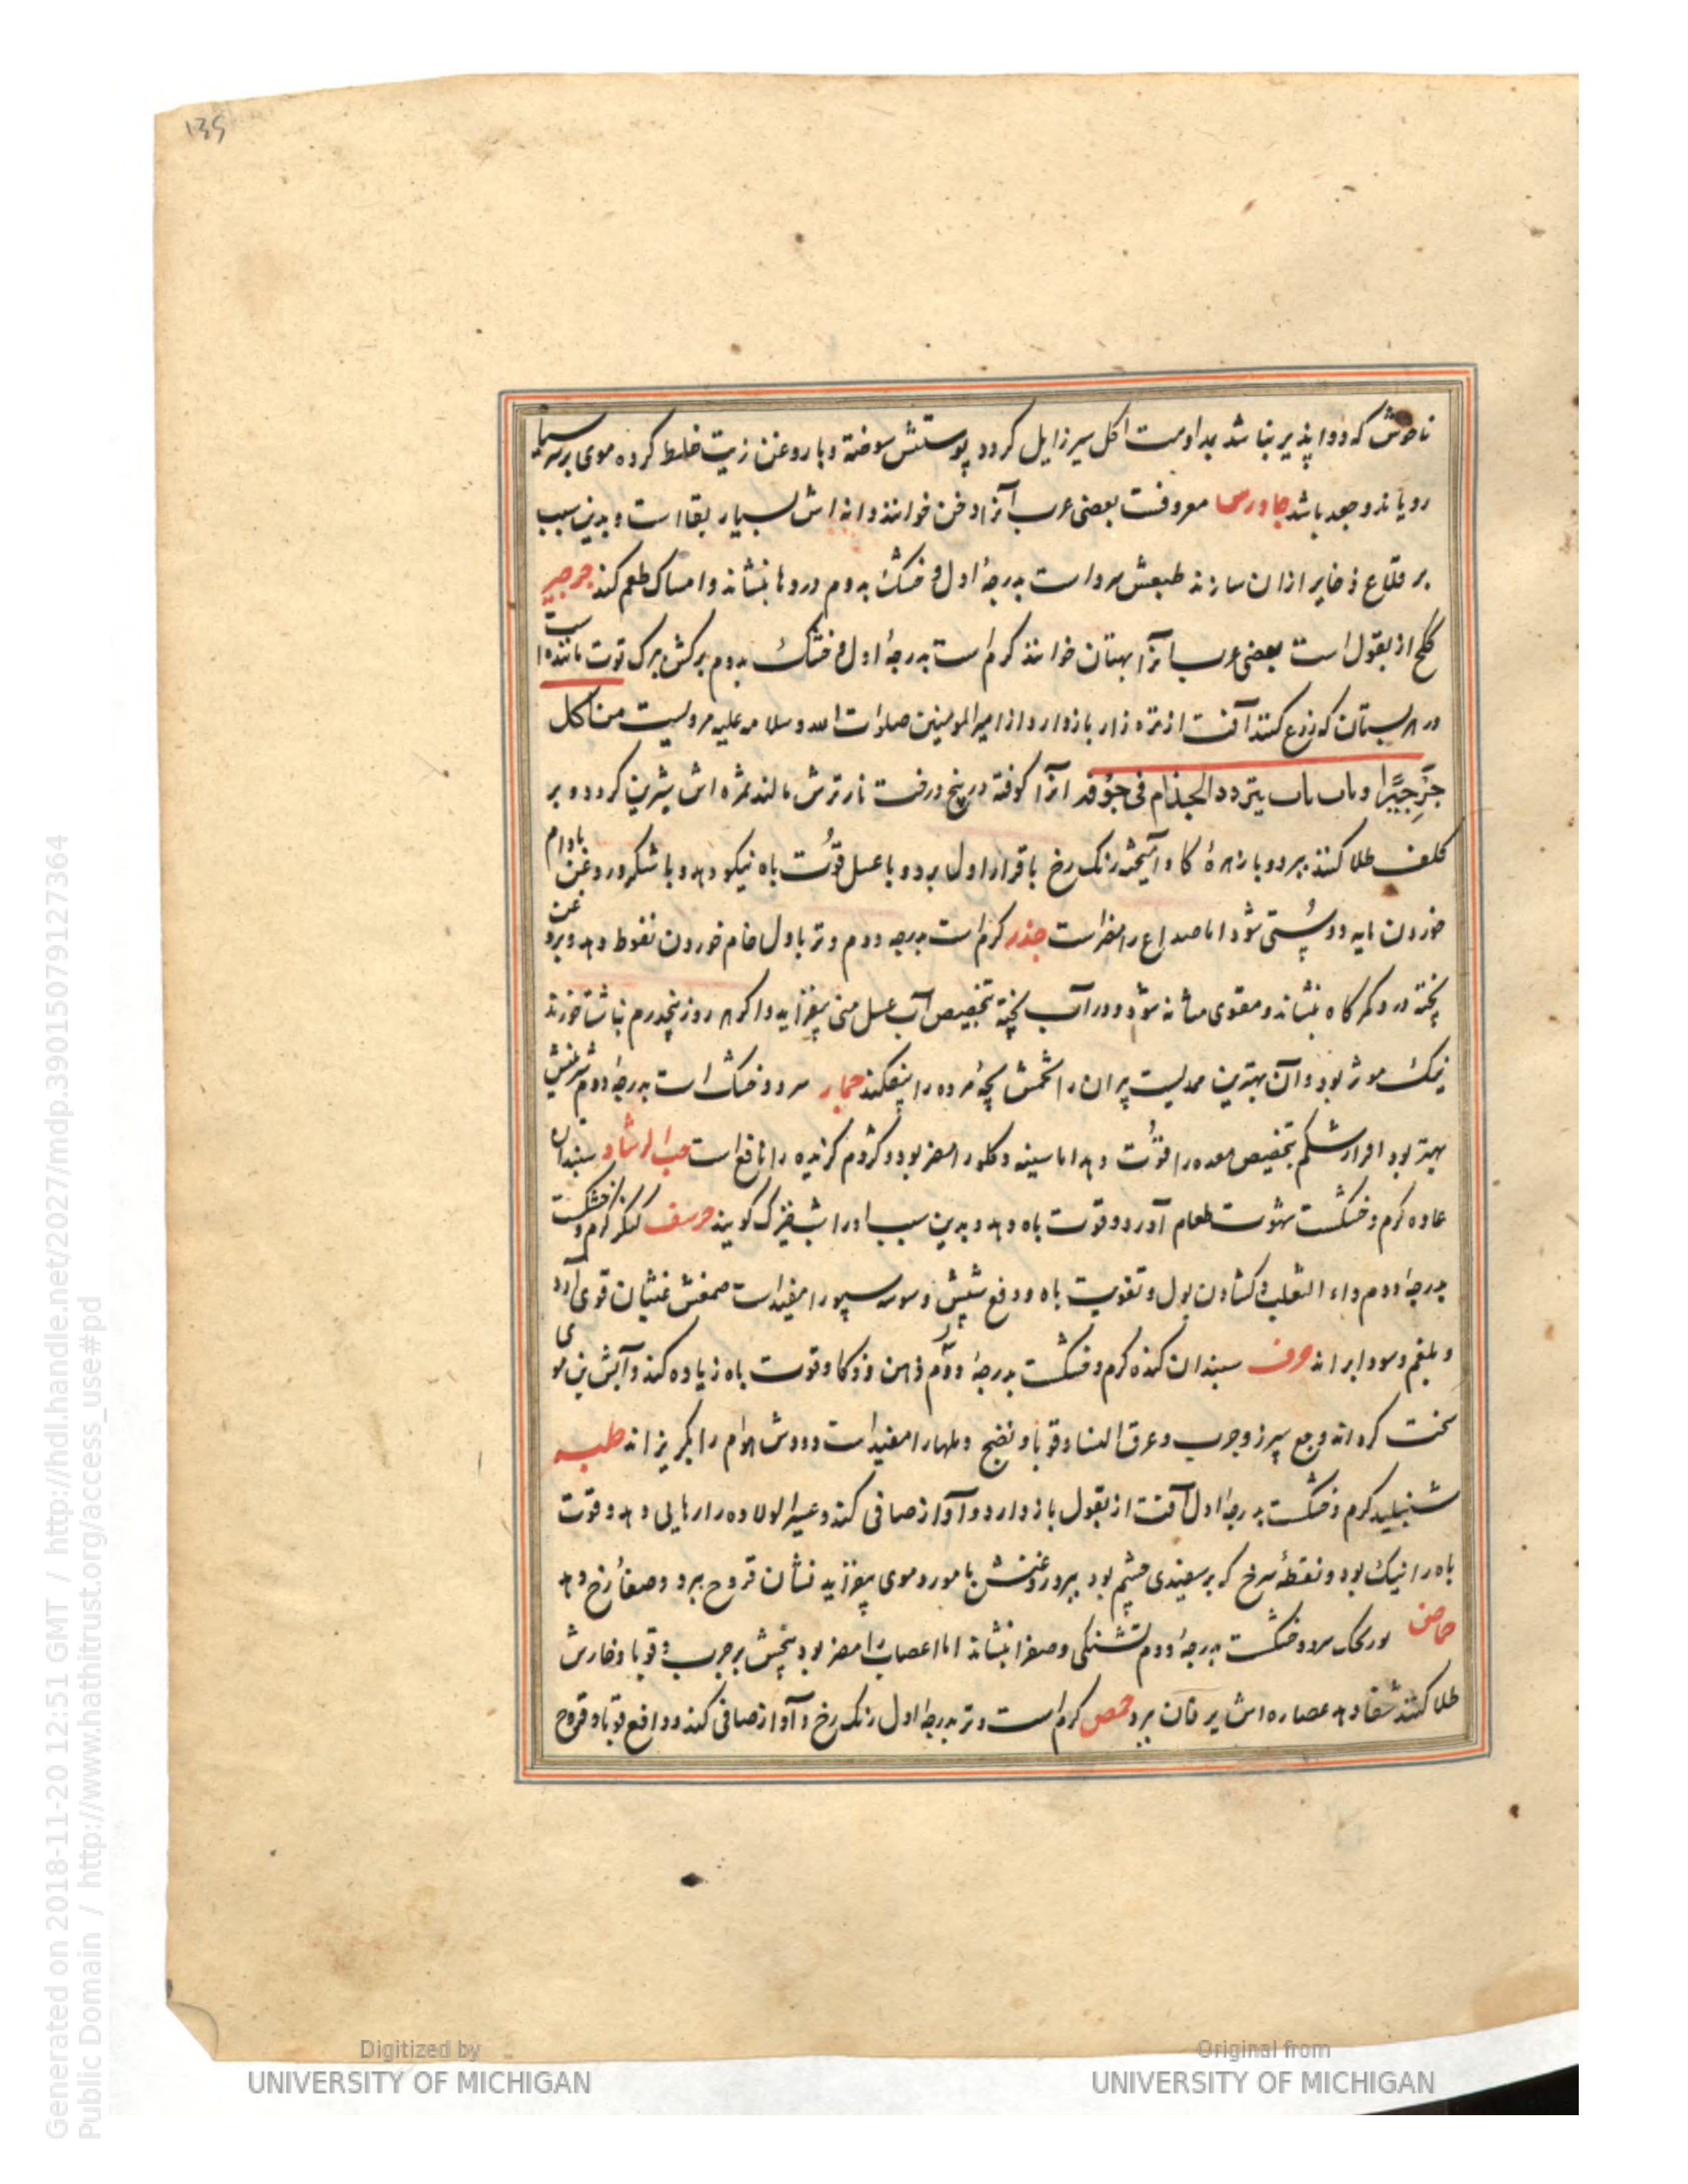 135
ناخوش که دوا پذیر نباشد بمداومت اکل سیر زایل کردد پوستش سوخته و با روغن زیت خلط کرده موی بر سر سیاه
رویاند و جعد باشد جاورس معروفست بعضی عرب آنرا دخن خوانند و انه اش بسیار بقا است و بدین سبب
بر قلاع ذخایر ازان سازند طبعش سرد است بدرجهٔ اول و خشک بدوم دردها بنشاند و امساک طعم کند جرجیر
کلج از بقول است بعضی عرب آنرا بهتان خوانند کرم است بدرجهٔ اول و خشک بدوم برکش برک توت مانندهاست
در هر بستان که زرع کنند آفت از تره زار بازدارد و از امیرالمومنین صلوات الله و سلامه علیه مرویست من اکل
جرجیرا و بات بات یتردد الجذام فی جوفه انرا کوفته در بیخ درخت نار ترش مالند ثمره اش شیرین کردد و بر
کلف طلا کنند ببرد و با زهرهٔ کاو آمیخته رنک رخ باقرار اول برد و با عسل قوت باه نیکو دهد و با شکر و روغن بادام
خوردن مایه دوستی شود اما صداع را مضر است جذر کرم است بدرجه دوم و تر باول خام خوردن نفوط دهد و برغبت
پخته درد کمرکاه بنشاند و مقوی مثانه شود و در آب پخته بتخصیص آب عسل منی بیفزاید و اکر هر روز پنجدرم ناشتا خورند
نیک موثر بود و آن بهترین مدلیست پیران را تخمش بچهٔ مرده را بیفکند جمار سرد و خشک است بدرجهٔ دوم شیرینش
بهتر بود افراز شکم بتخصیص معده را قوت دهد اما سینه و کلو را مضر بود و کژدم کزیده را نافع است حب الرشاد سپندان
عاده کرم و خشکست شهوت طعام آورد و قوت باه دهد و بدین سبب او را شب خیزک کویند حرشف کنکر کرم و خشکست
بدرجهٔ دوم داء الثعلب و کشادن بول و تقویت باه و دفع شپش و سوسه سپور را مفیدست صمغش غثیان قوی آرد
و بلغم و سودا براند حرف سپندان کنده کرم و خشکست بدرجهٔ دوم ذهن و ذکا و قوت باه زیاده کند و آبش بن موی
سخت کرداند وجع سپرز و جرب و عرق النسا و قوبا و نضج دملها را مفیداست و دودش هوام را بکریزاند حلبه
شنبلید کرم و خشکست بدرجهٔ اول آفت از بقول بازدارد و آواز صافی کند و عسیر الولاده را رهایی دهد و قوت
باه را نیک بود و نقطهٔ سرخ که بر سفیدی چشم بود ببرد روغنش با مورد موی بیفزاید نشان قروح ببرد و صفای رخ دهد
حماض بورنک سرد و خشکست بدرجهٔ دوم تشنکی و صفرا بنشاند اما اعصاب را مضر بود بیخش بر جرب و قوبا و خارش
طلا کنند شفا دهد عصاره اش یرقان برد حمص کرم است و تر بدرجهٔ اول رنک رخ و آواز صافی کند و دافع قوبا و قروح
Generated on 2018-11-20 12:51 GMT / http://hdl.handle.net/2027/mdp.39015079127364
Public Domain / http://www.hathitrust.org/access_use#pd
Digitized by
UNIVERSITY OF MICHIGAN
Original from
UNIVERSITY OF MICHIGAN